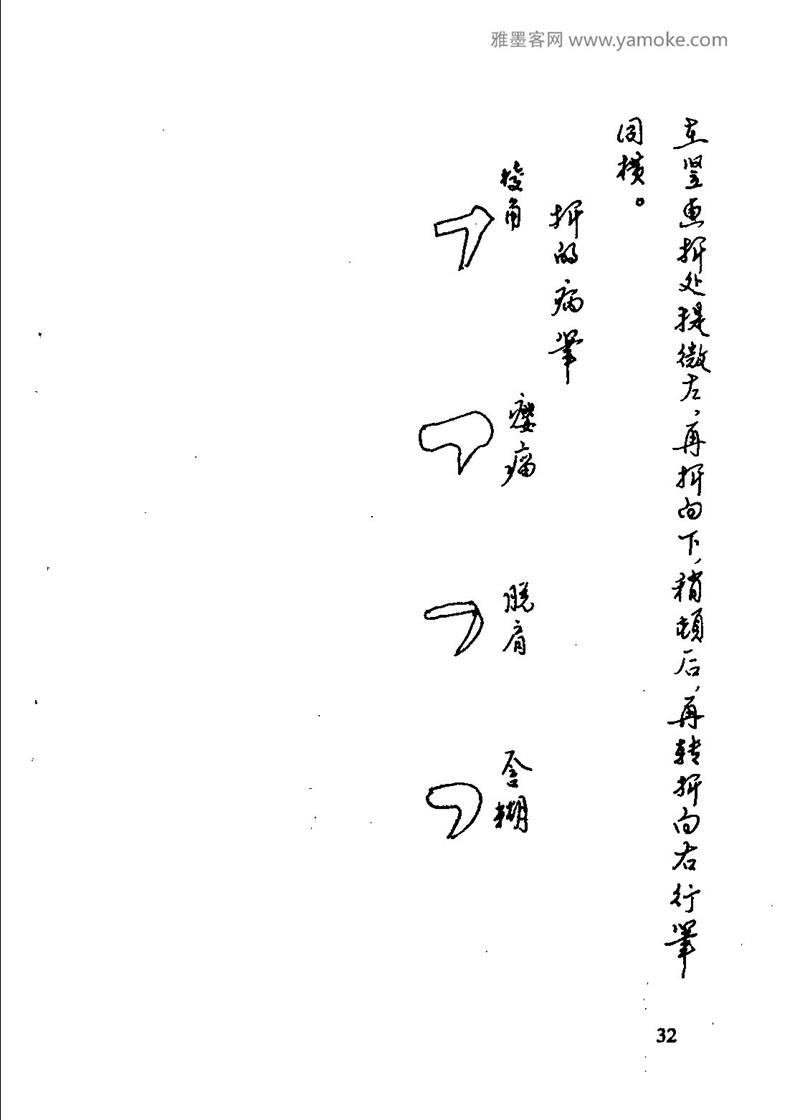 雅墨客网 www.yamoke.com
在竖画折处提微左，再折向下，稍顿后，再转折向右行筆
同横。
折的病筆
棱角
瘿瘤
脱肩
含糊
32